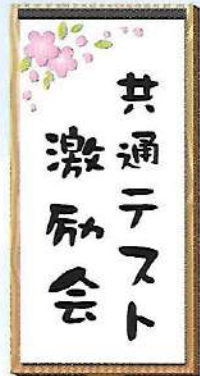 共通テスト
激励会